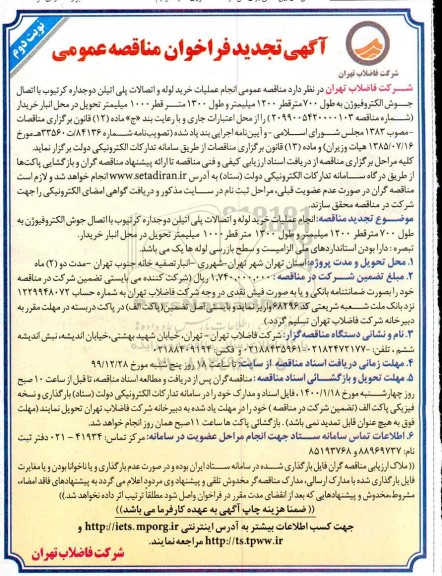 نوبت دوم
آگهی تجدید فراخوان مناقصه عمومی
شرکت فاضلاب تهران
شرکت فاضلاب تهران در نظر دارد مناقصه عمومی انجام عملیات خرید لوله و اتصالات پلی اتیلن دوجداره کرتیوب با اتصال
جوش الکتروفیوژن به طول ۷۰۰ متر قطر ۱۲۰۰ میلیمتر و طول ۱۳۰۰ متر قطر ۱۰۰۰ میلیمتر تحویل در محل انبار خریدار
(شماره مناقصه ۲۰۹۹۰۰۵۴۲۰۰۰۰۱۰۳) را از محل اعتبارات جاری و با رعایت بند «ج» ماده (۱۲) قانون برگزاری مناقصات
-مصوب ۱۳۸۳ مجلس شورای اسلامی- و آیین‌نامه اجرایی بند یاد شده (تصویب‌نامه شماره ۸۴۱۳۶/ت۳۳۵۶۰هـ مورخ
۱۳۸۵/۰۷/۱۶ هیات وزیران) و ماده (۱۳) قانون برگزاری مناقصات از طریق سامانه تدارکات الکترونیکی دولت برگزار نماید.
کلیه مراحل برگزاری مناقصه از دریافت اسناد ارزیابی کیفی و فنی مناقصه تا ارائه پیشنهاد مناقصه گران و بازگشایی پاکت‌ها
از طریق درگاه سامانه تدارکات الکترونیکی دولت (ستاد) به آدرس www.setadiran.ir انجام خواهد شد و لازم است
مناقصه گران در صورت عدم عضویت قبلی، مراحل ثبت نام در سایت مذکور و دریافت گواهی امضای الکترونیکی را جهت
شرکت در مناقصه محقق سازند.
موضوع تجدید مناقصه: انجام عملیات خرید لوله و اتصالات پلی اتیلن دوجداره کرتیوب با اتصال جوش الکتروفیوژن به
طول ۷۰۰ متر قطر ۱۲۰۰ میلیمتر و طول ۱۳۰۰ متر قطر ۱۰۰۰ میلیمتر تحویل در محل انبار خریدار.
تبصره: دارا بودن استانداردهای ملی الزامیست و سطح بازرسی لوله ها یک می باشد.
۱. محل تحویل و مدت پروژه: استان تهران شهر تهران-شهرری-انبار تصفیه خانه جنوب تهران -مدت دو (۲) ماه
۲. مبلغ تضمین شرکت در مناقصه: ۱,۷۴۰,۰۰۰,۰۰۰ ریال (شرکت کننده می بایستی تضمین شرکت در مناقصه
خود را بصورت ضمانتنامه بانکی و یا به صورت فیش نقدی در وجه شرکت فاضلاب تهران به شماره حساب ۱۲۲۹۹۴۸۰۷۲
نزد بانک ملت شعبه شریعتی کد ۶۸۲۹۶ واریز نماید و بایستی اصل تضمین (پاکت الف) در پاکت دربسته در مهلت مقرر به
دبیرخانه شرکت فاضلاب تهران تسلیم گردد.)
۳. نام و نشانی دستگاه مناقصه‌گزار: شرکت فاضلاب تهران – تهران، خیابان شهید بهشتی، خیابان اندیشه، نبش اندیشه
ششم، تلفن: ۰۲۱۸۲۴۷۲۱۷۷-۰۲۱۸۸۴۳۵۹۶۱ و فکس: ۰۲۱۸۸۴۰۹۱۹۴
۴. مهلت زمانی دریافت اسناد مناقصه از سایت: تا ساعت ۱۸ روز پنج شنبه مورخ ۹۹/۱۲/۲۸
۵. مهلت تحویل و بازگشائی اسناد مناقصه: مناقصه گران پس از دریافت و مطالعه اسناد مناقصه، تا قبل از ساعت ۱۰ صبح
روز چهارشنبه مورخ ۱۴۰۰/۱/۱۸، فایل اسناد و مدارک خود را در سامانه تدارکات الکترونیکی دولت (ستاد) بارگذاری و نسخه
فیزیکی پاکت الف (تضمین شرکت در مناقصه) خود را در مهلت یاد شده به دبیرخانه شرکت فاضلاب تهران تحویل نمایند (مهلت
فوق به هیچ عنوان قابل تمدید نمی باشد). بازگشائی پاکت ها ساعت ۱۱ صبح همان روز انجام خواهد شد.
۶. اطلاعات تماس سامانه ستاد جهت انجام مراحل عضویت در سامانه: مرکز تماس: ۴۱۹۳۴ -۰۲۱ دفتر ثبت
نام: ۸۸۹۶۹۷۳۷ و ۸۵۱۹۳۷۶۸
((ملاک ارزیابی مناقصه گران فایل بارگذاری شده در سامانه ستاد ایران بوده و در صورت عدم بارگذاری و یا ناخوانا بودن و یا مغایرت
فایل بارگذاری شده با مدارک ارسالی، مدارک مناقصه گر مخدوش تلقی و پیشنهاد وی مردود اعلام می گردد به پیشنهادهای فاقد امضاء،
مشروط، مخدوش و پیشنهادهایی که بعد از انقضای مدت مقرر در فراخوان واصل شود مطلقا ترتیب اثر داده نخواهد شد.))
(( ضمنا هزینه چاپ آگهی به عهده کارفرما می باشد))
جهت کسب اطلاعات بیشتر به آدرس اینترنتی http://iets.mporg.ir و
http://ts.tpww.ir مراجعه نمایند.
شرکت فاضلاب تهران